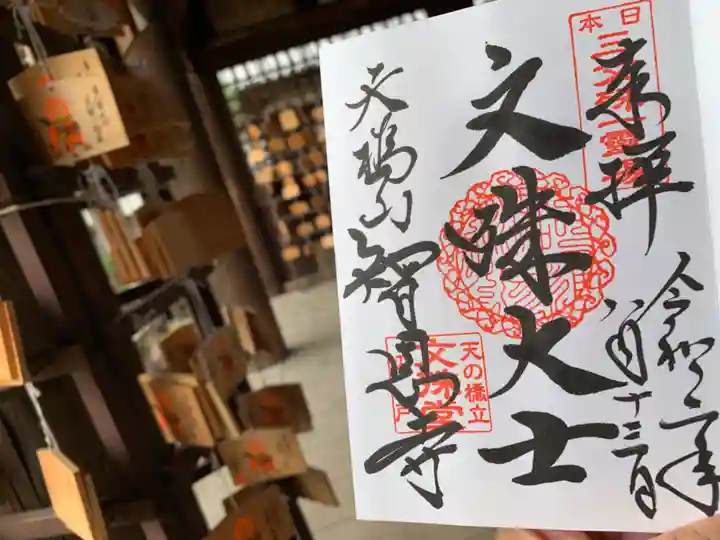 日本
三文殊一霊場
奉拝
令和二年
八月十三日
文殊大士
天橋山智恩寺
天の橋立
文殊堂